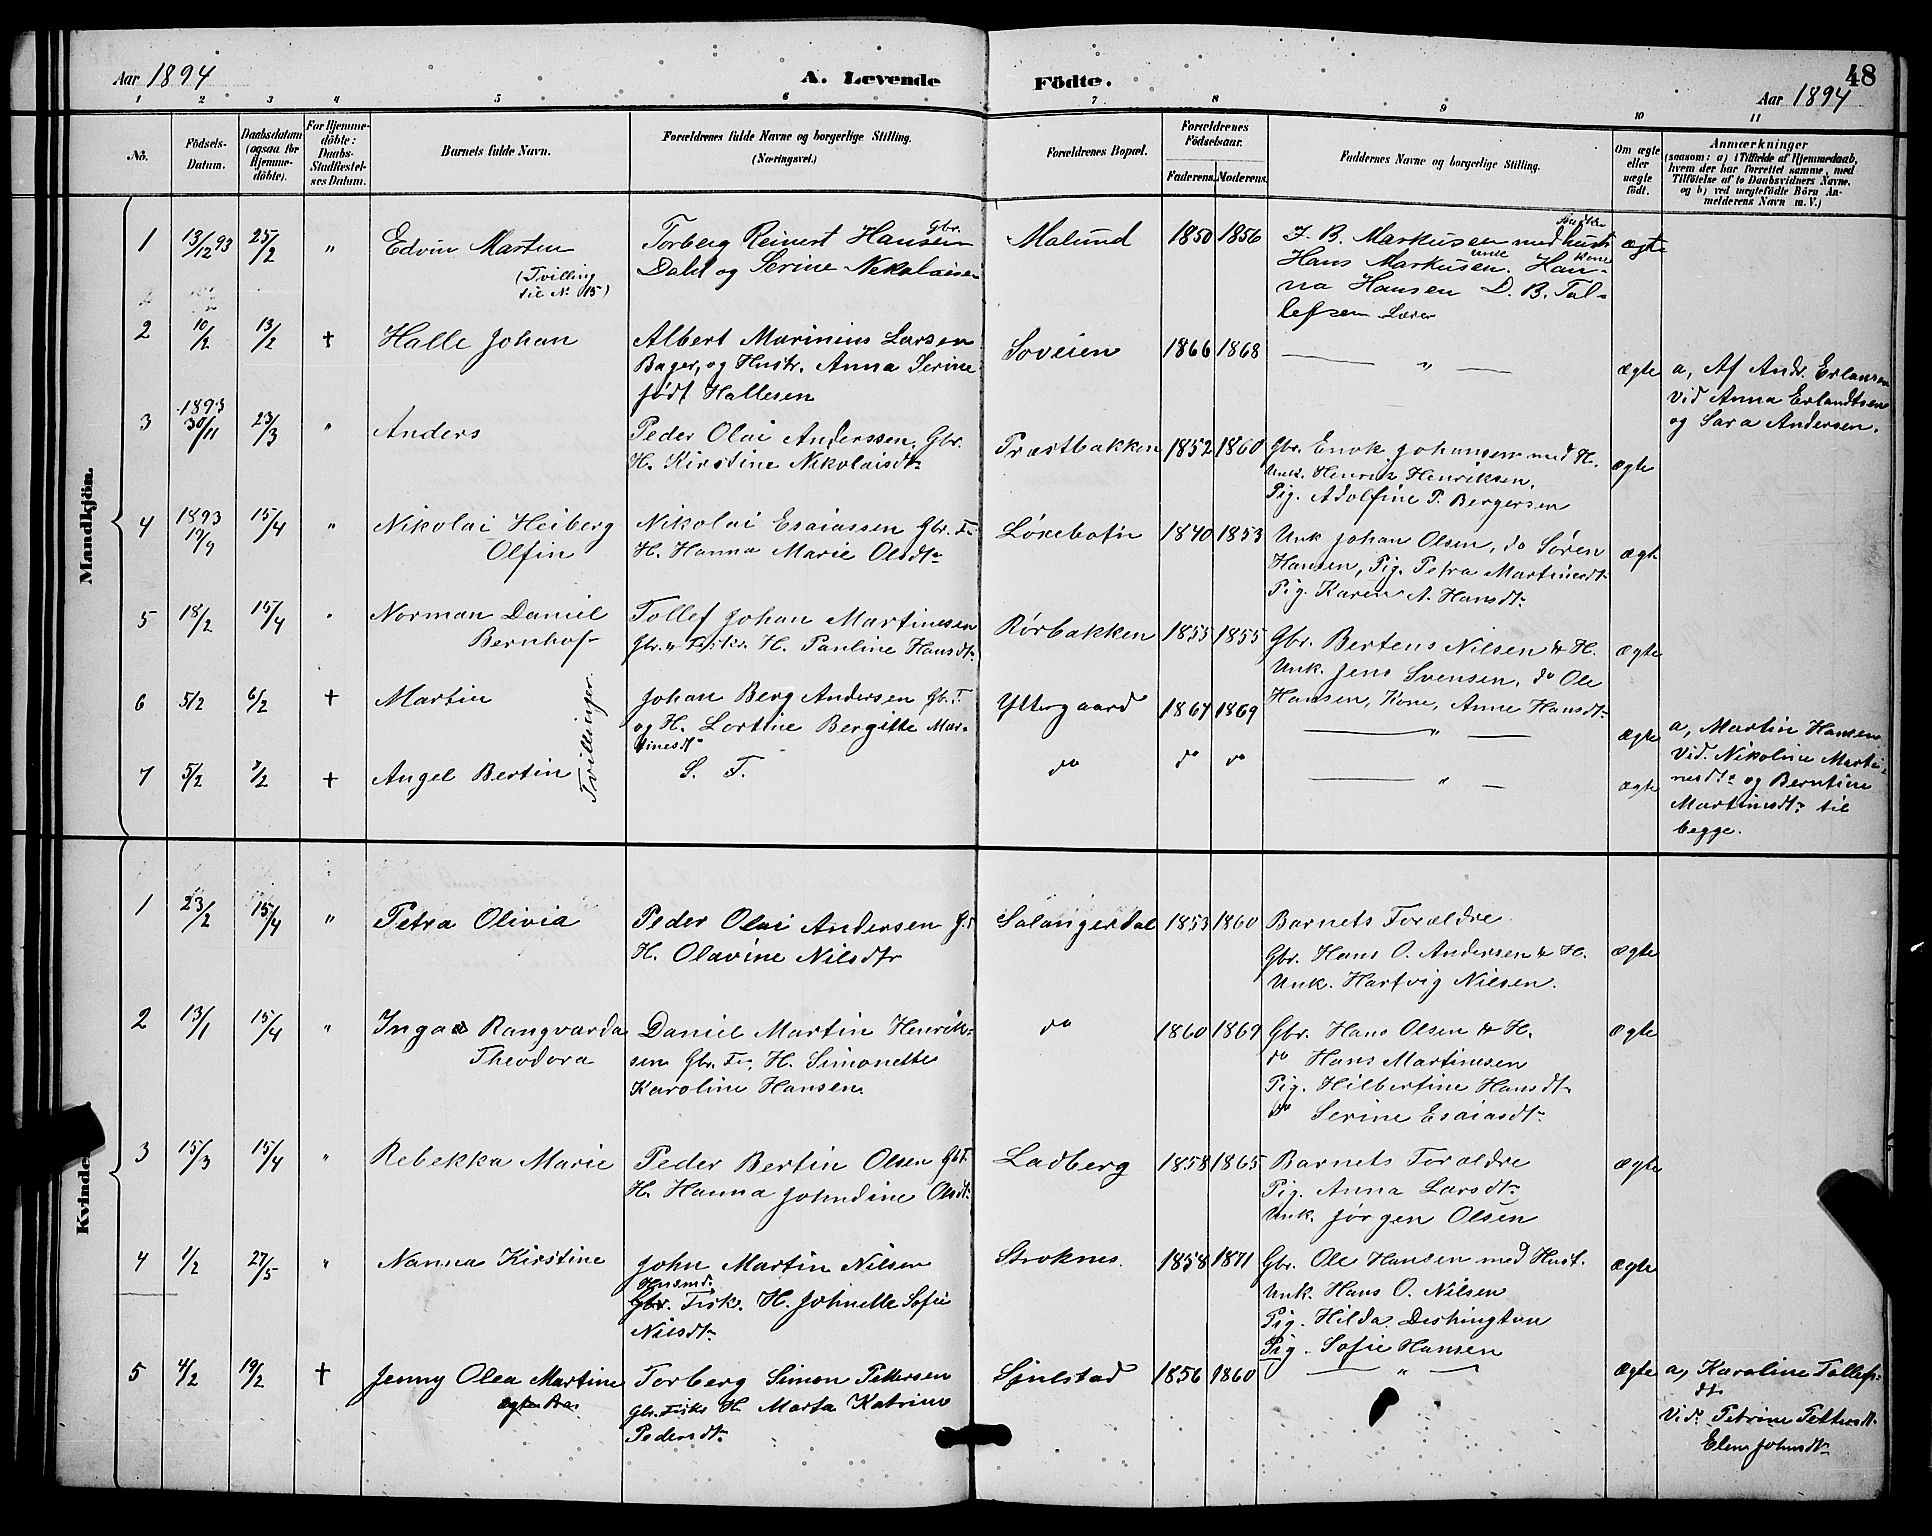 48
Aar 1894
A. Levende
Födte.
Aar 1894
1 2 3 4 5 6 7 8 9 10 11
No.
Födsels-
Datum.
Daabsdatum
(ogsaa for
Hjemme-
döbte).
For Hjemme-
döbte:
Daabs-
Stadfæstel-
ses Datum.
Barnets fulde Navn.
Forældrenes fulde Navne og borgerlige Stilling.
(Næringsvei.)
Forældrenes Bopæl.
Forældrenes
Födselsaar.
Faderens. Moderens.
Faddernes Navne og borgerlige Stilling.
Om ægte
eller
uægte
født.
Anmærkninger
(saasom: a) i Tilfælde af Hjemmedaab,
hvem der har forrettet samme, med
Tilföielse af to Daabsvidners Navne,
og b) ved uægtefödte Börn An-
melderens Navn m. V.)
Mandkjön.
1 13/12 93 25/2 " Edvin Marten
(Tvilling
til No 15)
Torberg Reinert Hansen Gbr.
Dahl og Serine Nekolaisen
Malund 1850 1856
J. B. Markusen med hust
Hans Markusen. unk Kone Han-
na Hansen D. B. Tol-
lefsen Lærer
ægte
2 10/2 13/2 † Halle Johan
Albert Marinius Larsen
Bager, og Hustr. Anna Serine
født Hallesen
Soveien 1866 1868 — " — ægte
a, Af Andr. Erlansen
Vid Anna Erlandtsen
og Sara Andersen.
3 1893 30/11 23/3 " Anders
Peder Olai Anderssen, Gbr.
H. Kirstine Nikolaisdtr
Præstbakken 1852 1860
Gbr. Enok Johansen med H.
Unk. Henrik Henriksen,
Pig. Adolfine P. Bergersen
ægte
4 1893 17/9 15/4 " Nikolai Heiberg
Olfin
Nikolai Esaiassen Gbr. F.
H. Hanna Marie Olsdtr
Løksebotn 1840 1853
Unk Johan Olsen, do Søren
Hansen, Pig. Petra Martinsdtr
Pig. Karen A. Hansdtr
ægte
5 18/2 15/4 " Norman Daniel
Bernhof
Tollef Johan Martinesen
Gbr. & Fisk. H. Pauline Hansdtr
Rørbakken 1855 1855
Gbr. Bertens Nilsen & H.
Unk. Jens Svensen, do Ole
Hansen, Kone, Anne Hansdtr
ægte
6 5/2 6/2 † Martin
Tvillinger.
Johan Berg Andersen Gbr. F
og H. Lortine Bergitte Mar-
tinesdtr
Yttergaard 1867 1869 — " — ægte
a, Martin Hansen
Vid. Nikoline Marti-
nesdtr og Berntine
Martinesdtr til
begge.
7 5/2 7/2 † Angel Bertin
S. F. do do do — " — ægte
Kvinde
1 23/2 15/4 " Petra Olivia
Peder Olai Andersen G.
H. Olavine Nilsdtr
Salangerdal 1853 1860
Barnets Forældre
Gbr. Hans O. Andersen & H.
Unk. Hartvig Nilsen.
ægte
2 13/1 15/4 " Inga Rangvarda
Theodora
Daniel Martin Henrik-
sen Gbr. Fi. H. Simonette
Karoline Hansen.
do 1860 1869
Gbr. Hans Olsen & H.
do Hans Martinesen
Pig. Hilbertine Hansdtr
do Serine Esaiasdtr
ægte
3 15/3 15/4 " Rebekka Marie
Peder Bertin Olsen Gb F.
H. Hanna Johndine Olsdtr
Ladberg 1858 1865
Barnets Forældre
Pig. Anna Larsdtr
Unk. Jørgen Olsen
ægte
4 1/2 27/5 " Nanna Kirstine
John Martin Nilsen
Husmd.
Gbr. Fisk. H. Johnette Sofie
Nilsdtr
Stroknes 1858 1871
Gbr. Ole Hansen med Hust.
Unk. Hans O. Nilsen
Pig. Hilda Deshington
Pig. Sofie Hansen
ægte
5 4/2 19/2 † Jenny Olea Martine
Torberg Simon Pettersen
Gbr. Fisk. H. Marta Katrine
Pedersdtr
Sjulstad 1856 1860 — " — ægte
a, Karoline Tollefs-
dtr
Vid. Petrine Pettersdtr
Elen Johnsdtr